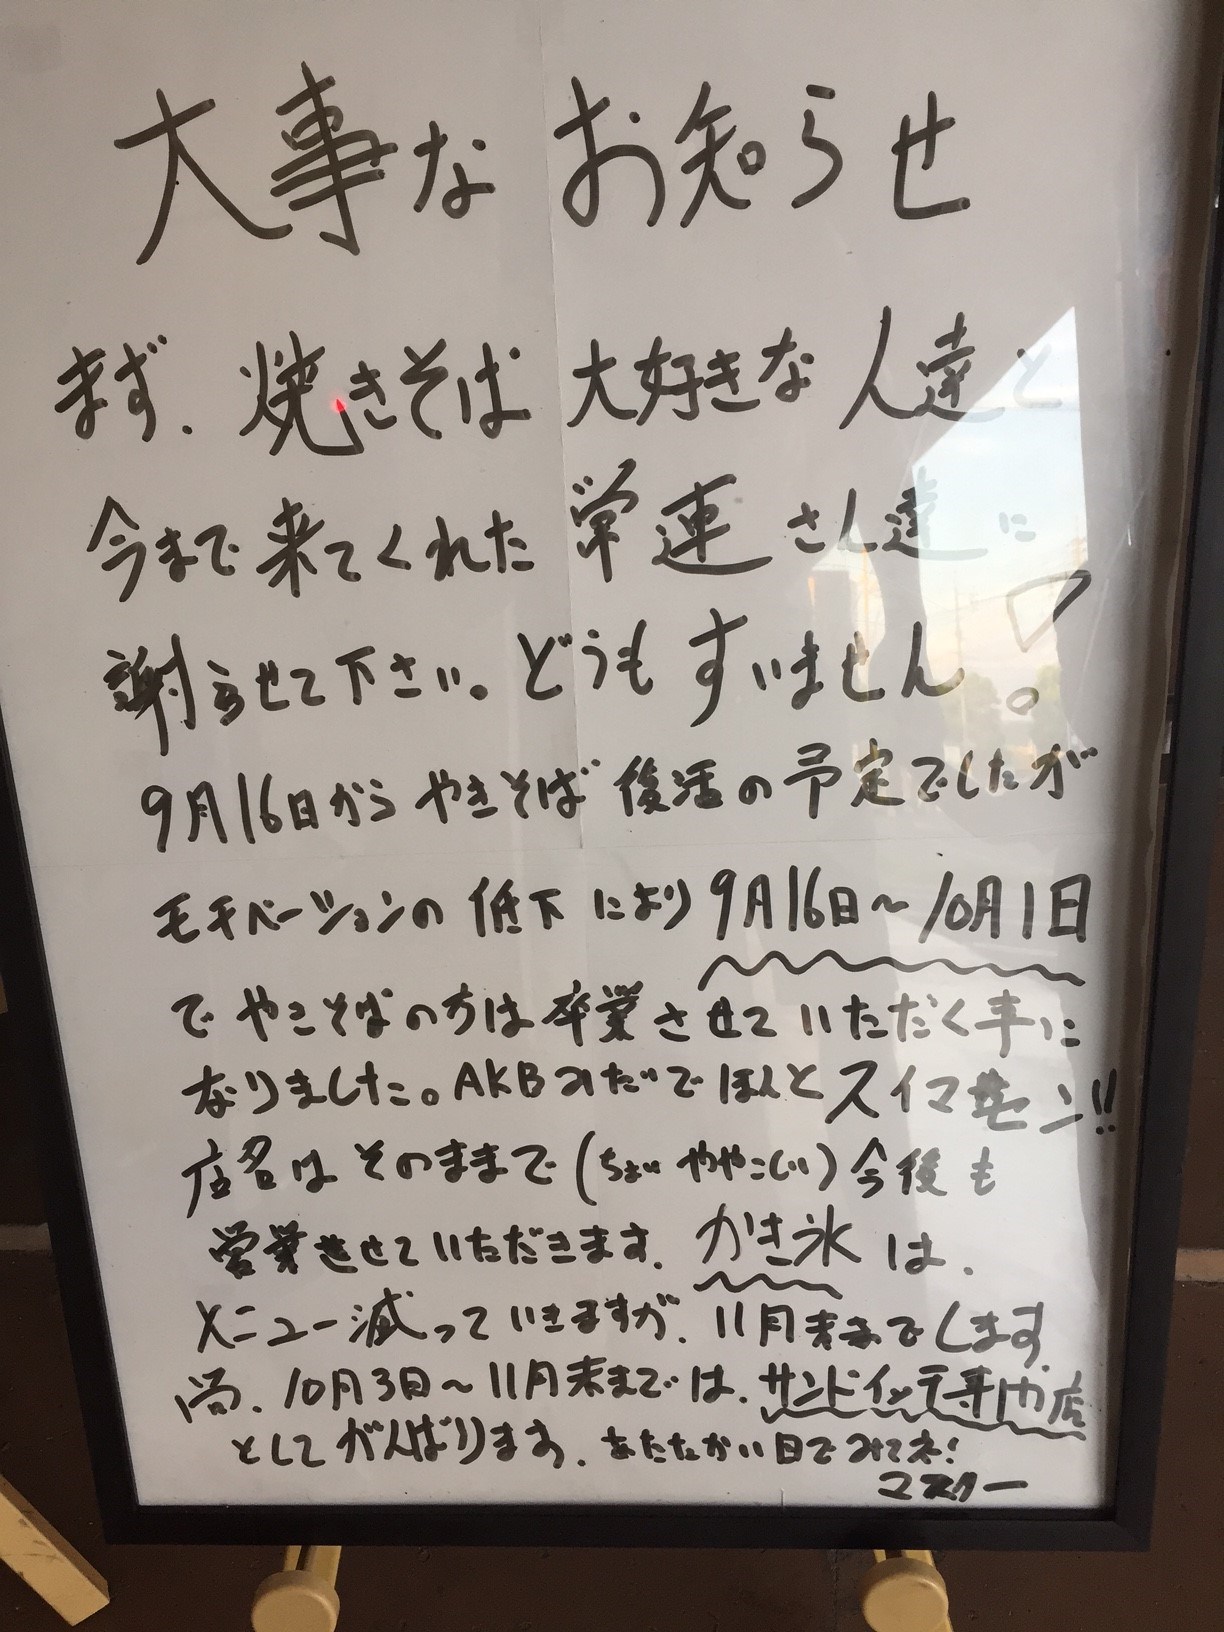 大事なお知らせ
まず、焼きそば大好きな人達と
今まで来てくれた常連さん達に
謝らせて下さい。どうもすいません!
9月16日からやきそば復活の予定でしたが
モチベーションの低下により9月16日～10月1日
でやきそばの方は卒業させていただく事に
なりました。AKBみだでほんとスイマセン!!
店名はそのままで(ちょいややこしい)今後も
営業させていただきます。かき氷は、
メニュー減っていきますが、11月末までします。
尚、10月3日～11月末までは、サンドイッチ専門店
としてがんばります。あたたかい目でみてネ!
マスター